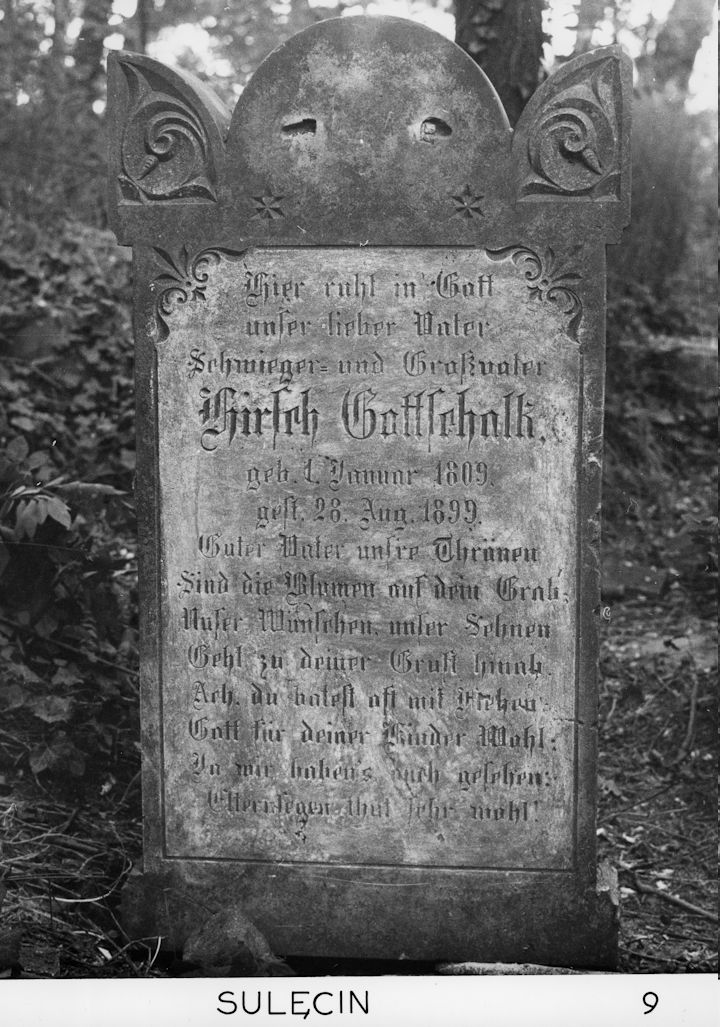 Hier ruht in Gott
unser lieber Vater
Schwieger- und Großvater
Hirsch Gottschalk.
geb. 1. Januar 1809.
gest. 28. Aug. 1899.
Guter Vater unsre Thränen
Sind die Blumen auf dein Grab;
Unser Wünschen, unser Sehnen
Geht zu deiner Gruft hinab.
Ach, du batest oft mit Flehen:
Gott für deiner Kinder Wohl;
Ja wir haben's auch gesehen:
Elternsegen thut sehr wohl!
SULĘCIN 9